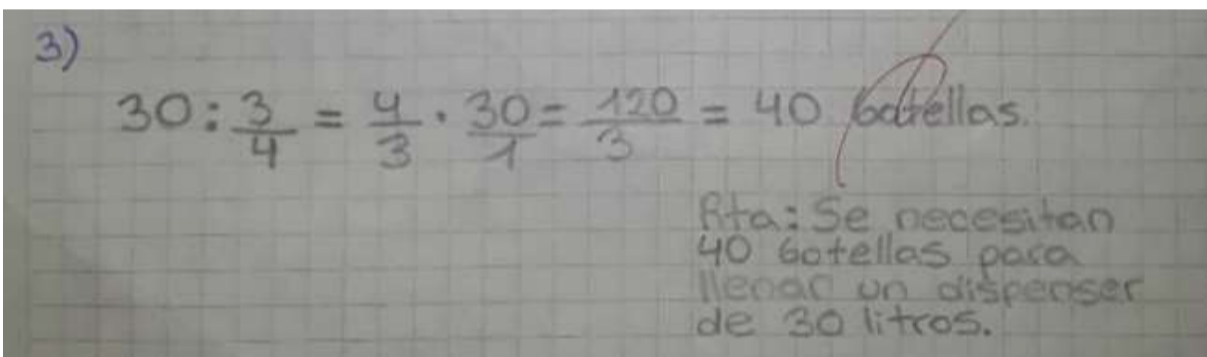 3)
30 : 3/4 = 4/3 · 30/1 = 120/3 = 40 botellas.
Rta: Se necesitan
40 botellas para
llenar un dispenser
de 30 litros.